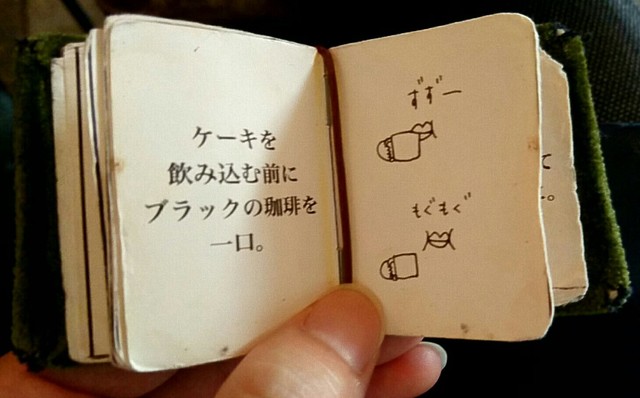 ケーキを
飲み込む前に
ブラックの珈琲を
一口。
ずずー
もぐもぐ
て
。